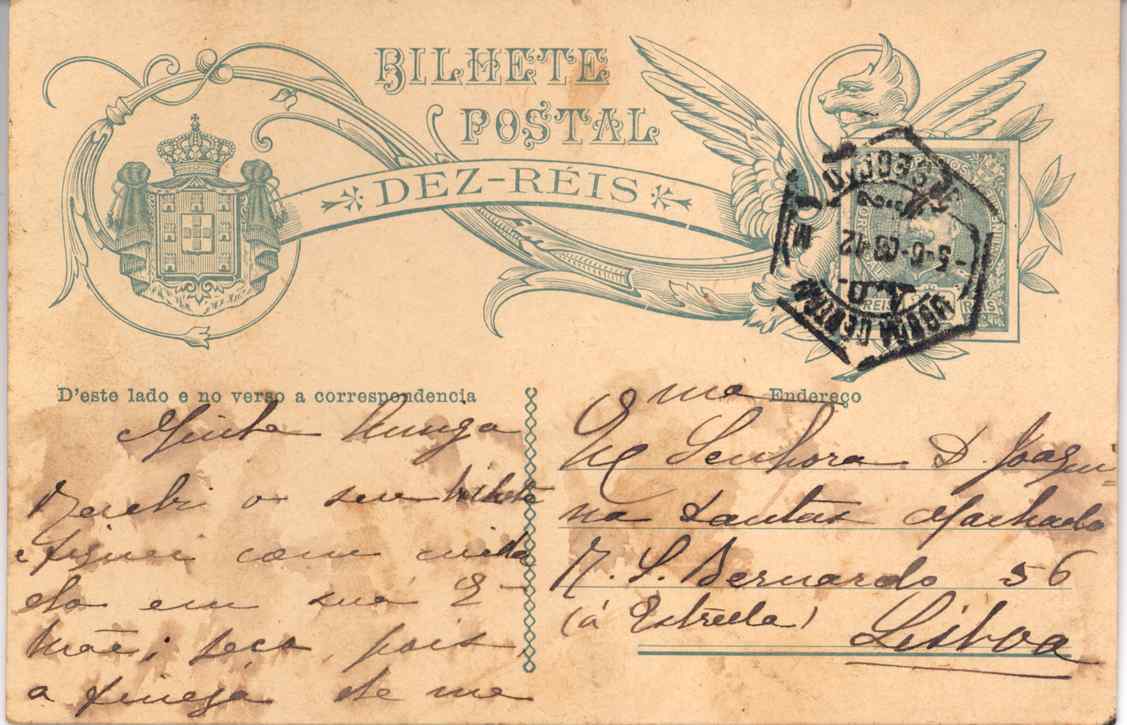 BILHETE
POSTAL
DEZ-RÉIS
D'este lado e no verso a correspondencia
Endereço
Minha Amiga
Recebi o seu bilhete
e fiquei com cuida
do em sua E
Mãe; peço, pois,
a fineza de me
Ema
Senhora D. Joaqui-
na Santos Machado
R. S. Bernardo 56
(á Estrella)
Lisboa
LISBOA CENTRAL